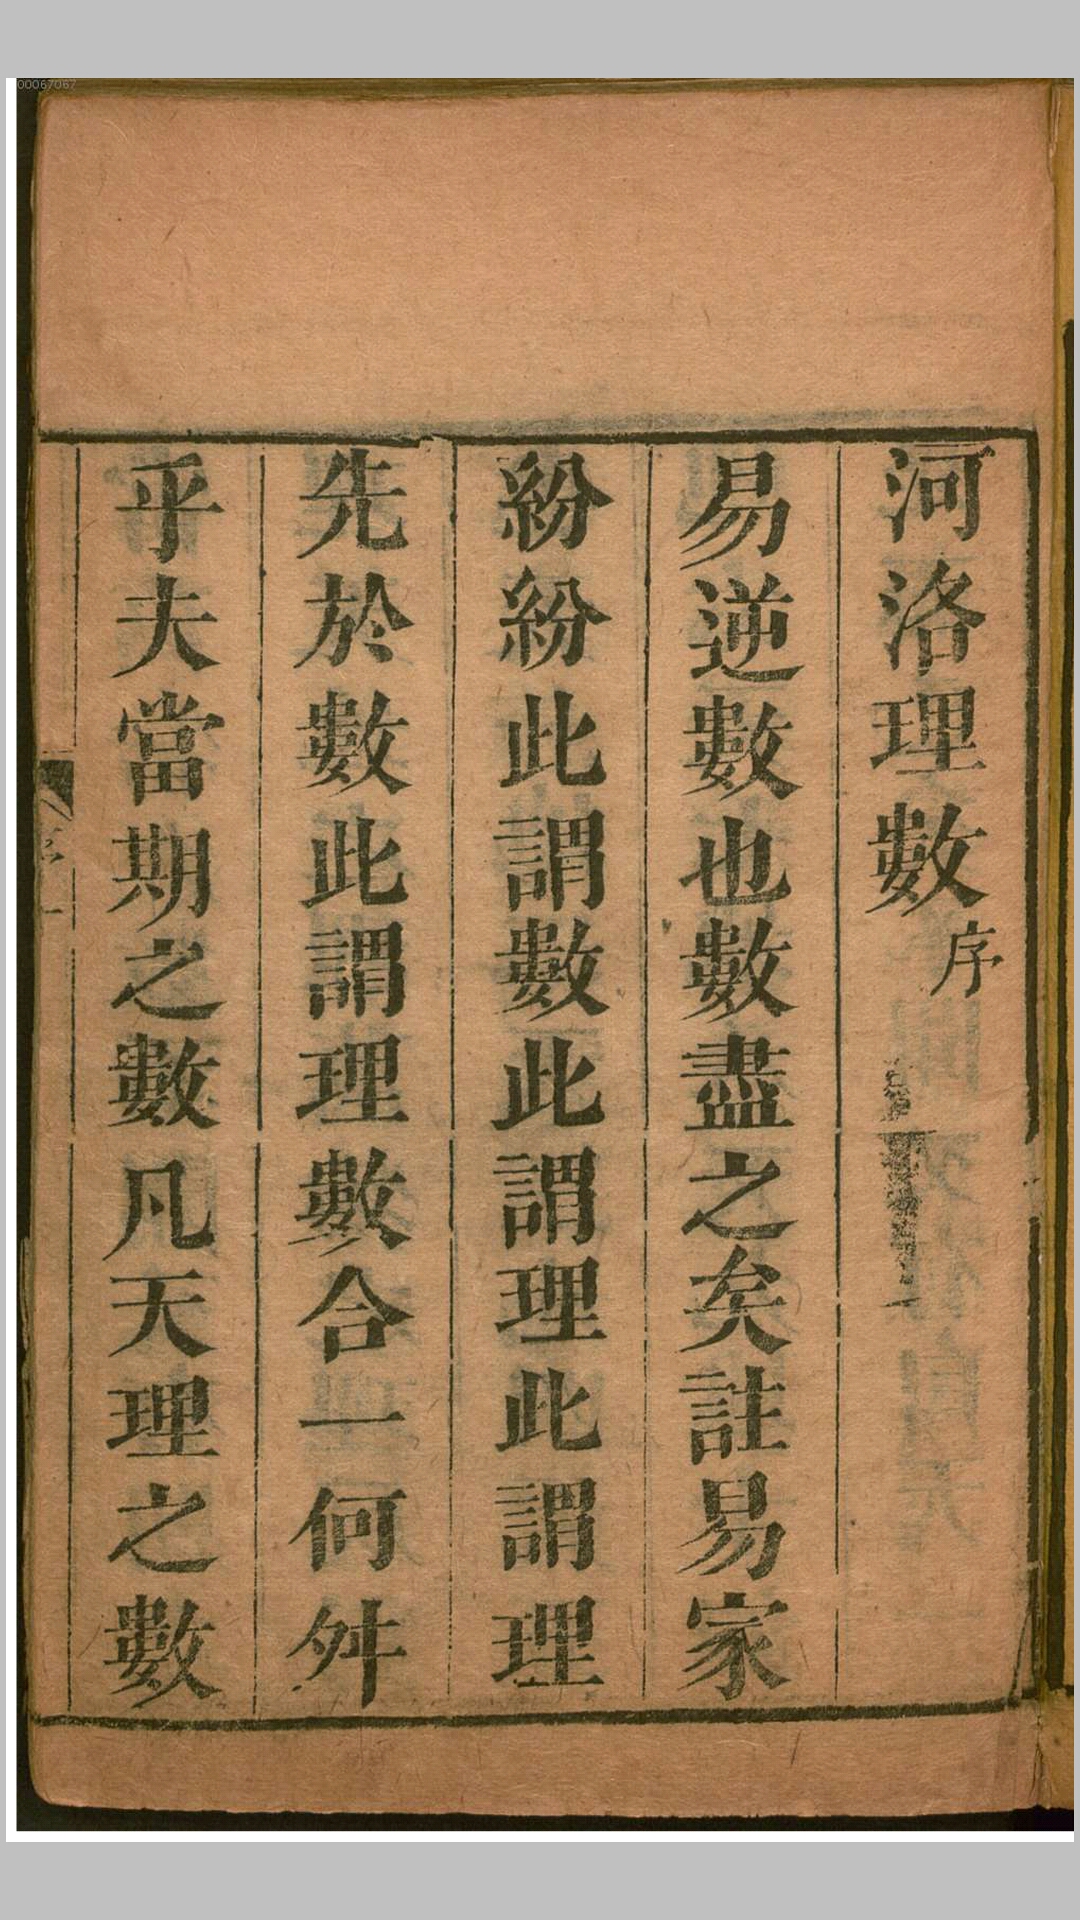 00067067
河洛理數序
易逆數也數盡之矣註易家
紛紛此謂數此謂理此謂理
先於數此謂理數合一何舛
乎夫當期之數凡天理之數